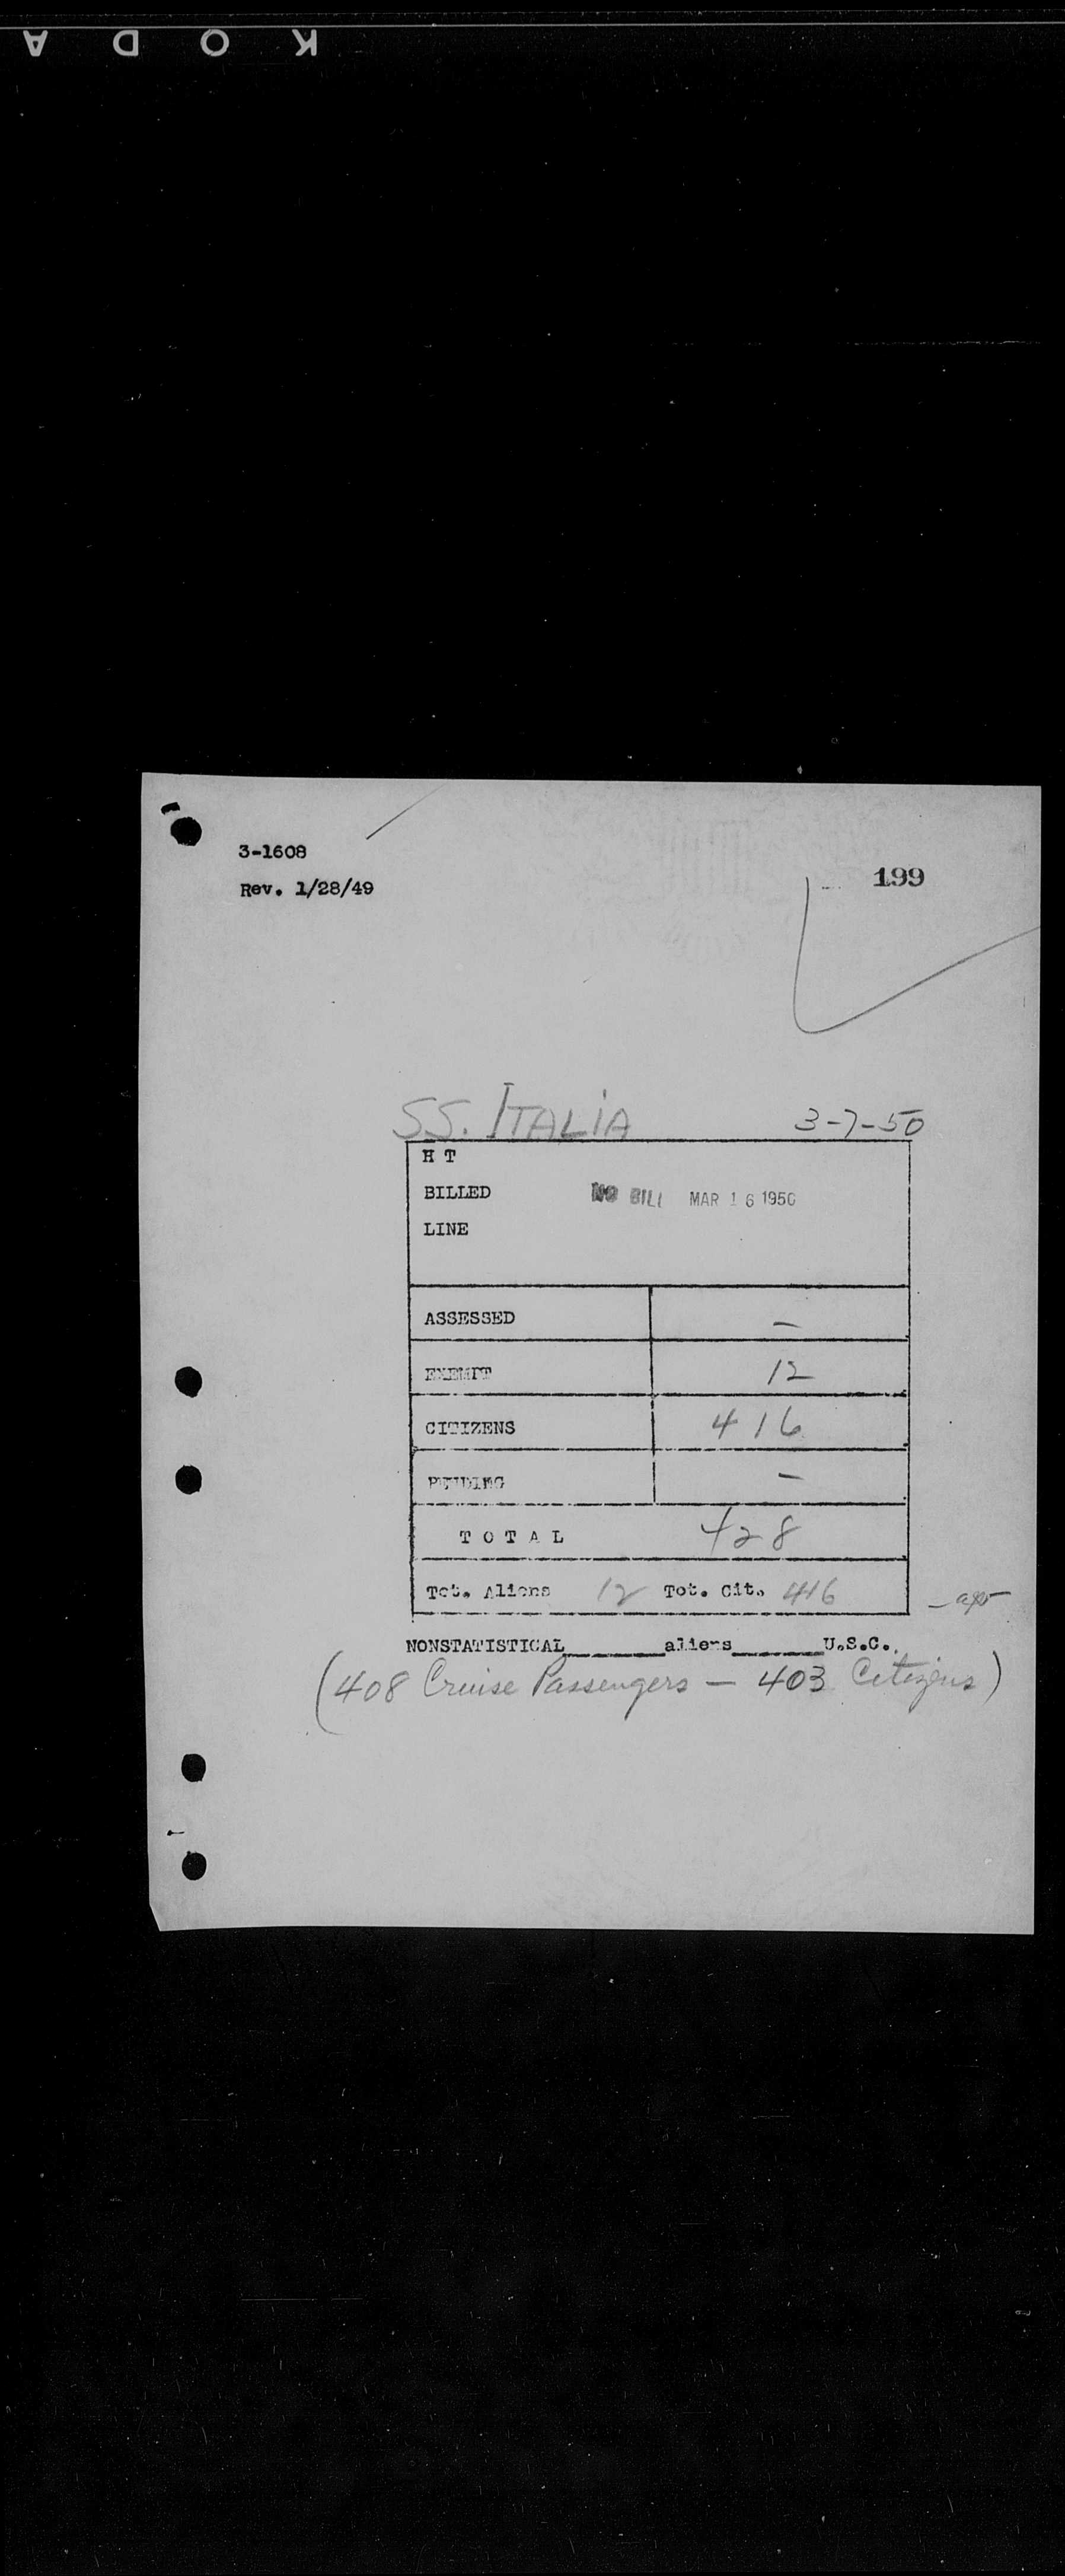 KODA
3-1608
Rev. 1/28/49
199
SS. ITALIA 3-7-50
H T
BILLED NO BILL MAR 16 1950
LINE
ASSESSED —
EXEMPT 12
CITIZENS 416
PENDING —
T O T A L 428
Tot. Aliens 12 Tot. Cit. 416
NONSTATISTICAL________aliens________U.S.C.
(408 Cruise Passengers — 403 Citizens)